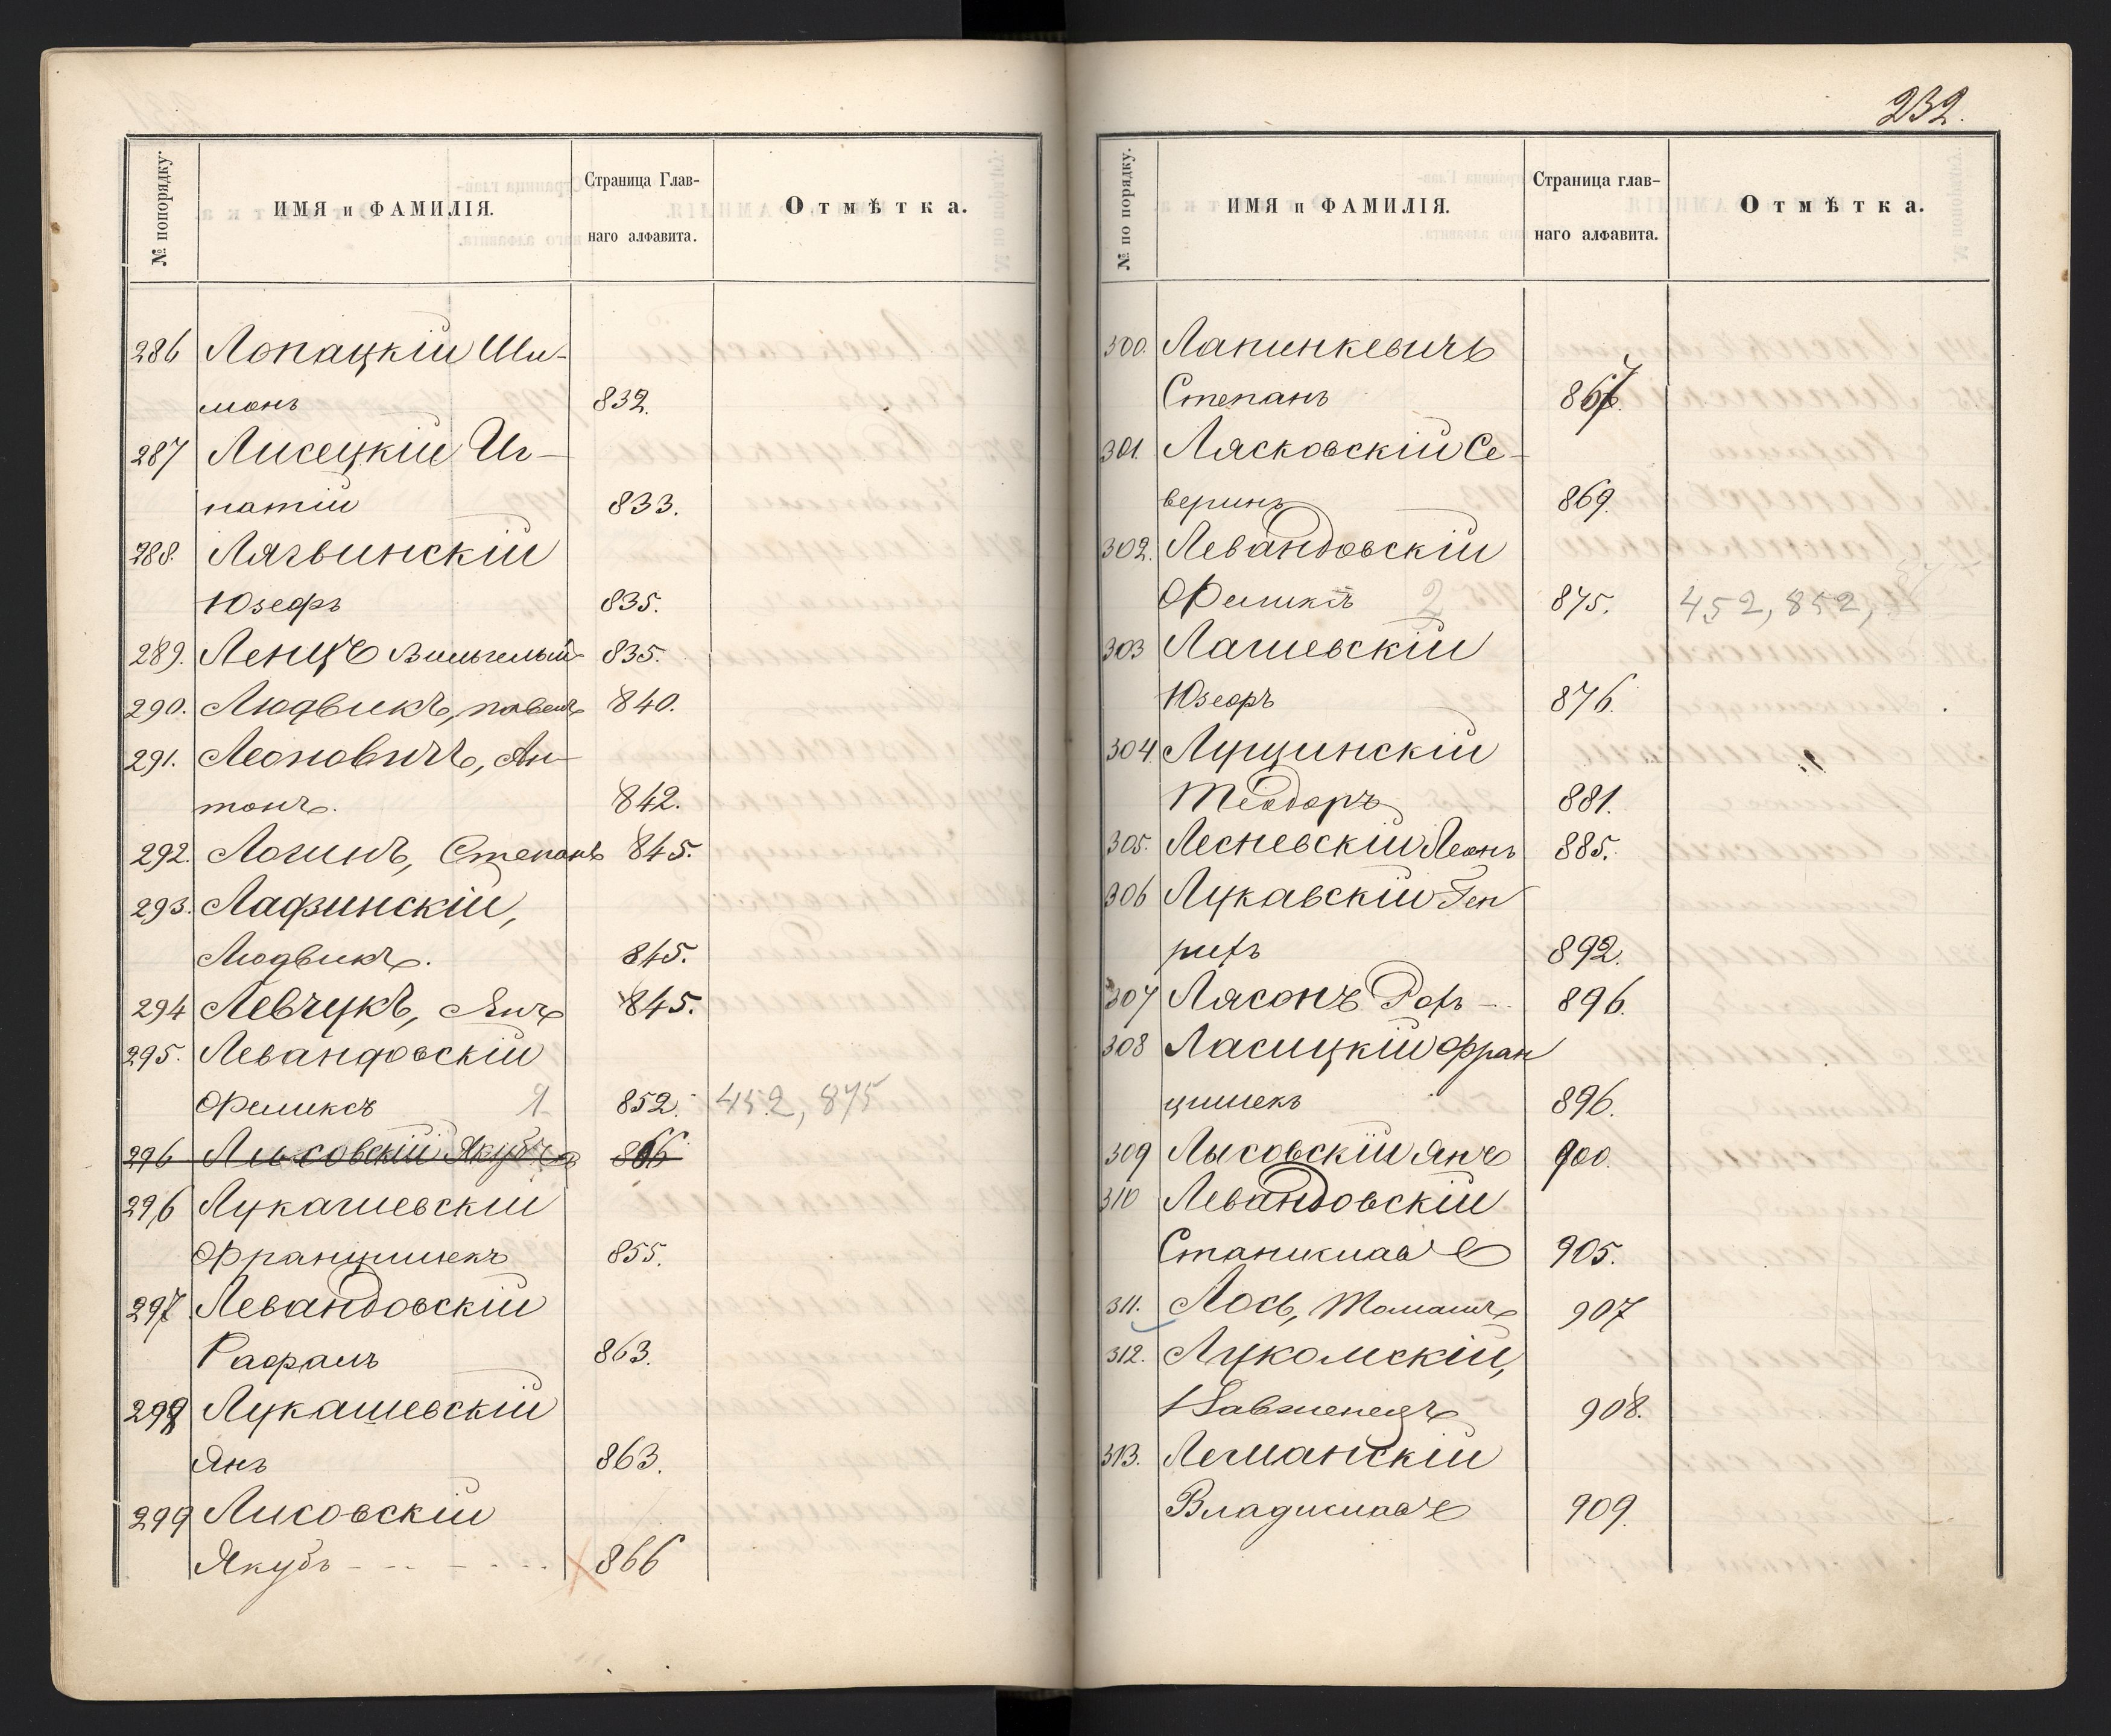 № попорядку.
ИМЯ и ФАМИЛІЯ.
Страница Глав-
наго алфавита.
Отмѣтка.
286 Лопацкій Ши-
монъ 832.
287 Лисецкій Иг-
натій 833.
288. Лягвинскій
Юзефъ 835.
289. Ленцъ Вильгельмъ 835.
290. Людвикъ, Павелъ 840.
291. Леоновичъ, Ан-
тонъ. 842.
292. Логинъ, Степанъ 845.
293. Ладзинскій,
Людвикъ. 845.
294 Левчукъ, Янъ 845.
295. Левандовскій
Феликсъ 1 852. 452, 875
296 Лысовскій Якубъ 866
296 Лукашевскій
Францишекъ 855.
297 Левандовскій
Рафалъ 863.
298 Лукашевскій
Янъ 863.
299 Лисовскій
Якубъ - - - - - - 866
232.
№ по порядку.
ИМЯ и ФАМИЛІЯ.
Страница глав-
наго алфавита.
Отмѣтка.
300. Лапинкевичъ
Степанъ 867.
301. Лясковскій Се-
веринъ 869.
302. Левандовскій
Феликсъ 2 875. 452, 852,
303 Лашевскій
Юзефъ 876.
304 Лущинскій
Теодоръ 881.
305. Лесневскій Леонъ 885.
306 Лукавскій Ген
рихъ 892.
307 Лясонъ Рохъ - - 896.
308 Ласицкій Фран
цишекъ 896.
309 Лысовскій Янъ 900.
310 Левандовскій
Станиславъ 905.
311. Лось, Томашъ 907
312. Лукомскій,
Вавженецъ 908.
313. Леманскій
Владиславъ 909.